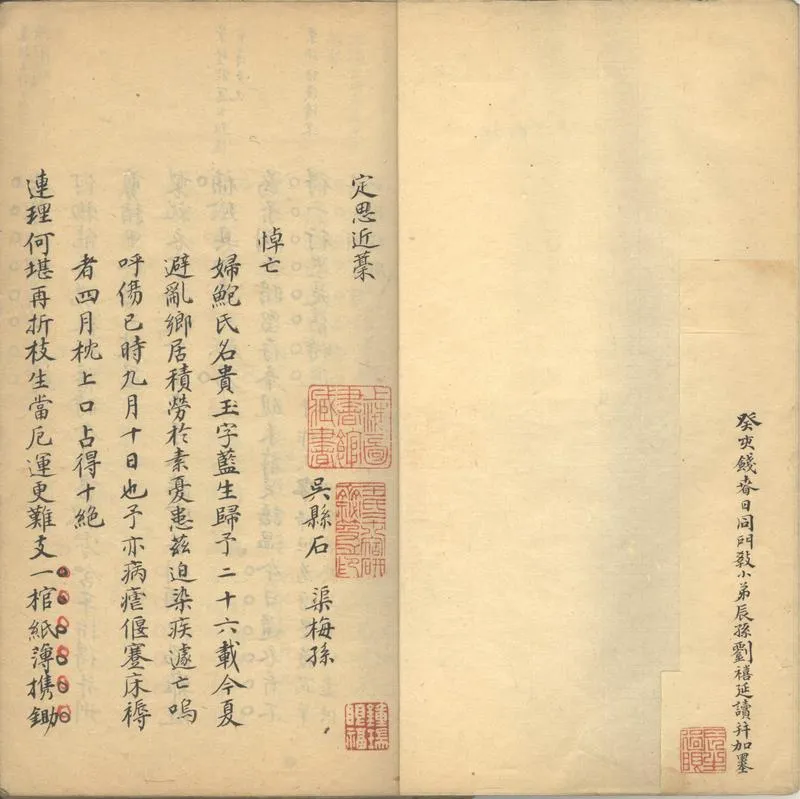 癸亥餞春日同門教小弟辰孫劉禧延讀并加墨
定思近藁
吳縣石 渠梅孫
悼亡
婦鮑氏名貴玉字藍生歸予二十六載今夏
避亂鄉居積勞於素憂恚茲迫染疾遽亡嗚
呼傷已時九月十日也予亦病瘧偃蹇床褥
者四月枕上口占得十絕
連理何堪再折枝生當厄運更難支一棺紙薄攜鋤
上海圖書館藏書